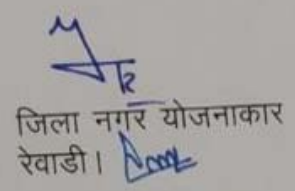 जिला नगर योजनाकार
रेवाडी।